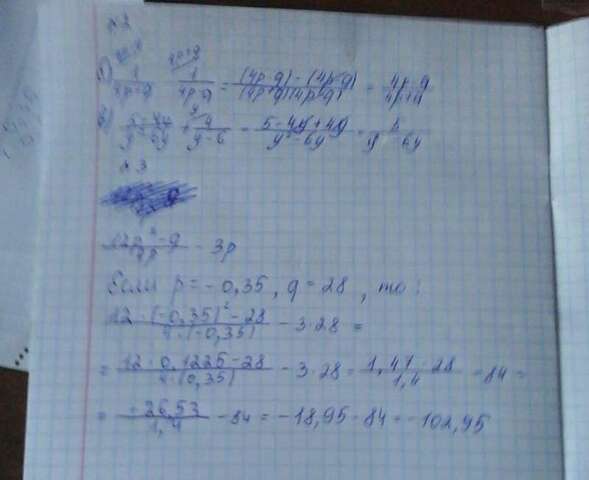 №2
1/(4p+q) - 1/(4p-q) = ((4p-q)-(4p-q))/((4p+q)(4p-q)) = (4p-q)/(4p+q)
(5-4y)/(y²-6y) + 4/(y-6) = (5-4y+4y)/(y²-6y) = 5/(y²-6y)
№3
(12p²-q)/4p - 3p
Если p = -0,35, q = 28, то:
(12·(-0,35)²-28)/(4·(-0,35)) - 3·28 =
= (12·0,1225-28)/(4·(0,35)) - 3·28 = (1,47-28)/1,4 - 84 =
= (-26,53)/1,4 - 84 = -18,95-84 = -102,95